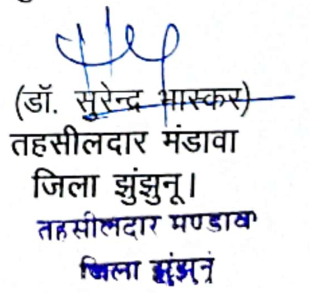 (डॉ. सुरेन्द्र भास्कर)
तहसीलदार मंडावा
जिला झुंझुनू।
तहसीलदार मण्डावा
जिला झुंझुनूं